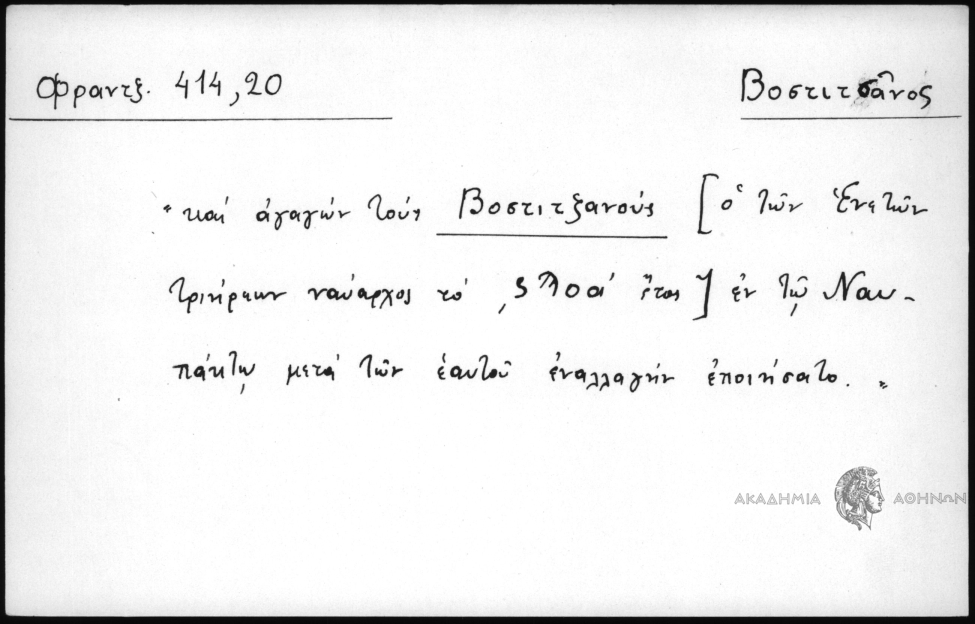 Φραντζ. 414,20
Βοστιτσᾶνός
"καί ἀγαγών τούς Βοστιτζανούς [ὁ τῶν Ἑνετῶν
τριήρεων ναύαρχος τό ͵ϛλοά ἔτος] ἐν τῷ Ναυ-
πάκτῳ μετά τῶν ἑαυτοῦ ἐναλλαγήν ἐποιήσατο."
ΑΚΑΔΗΜΙΑ ΑΘΗΝΩΝ